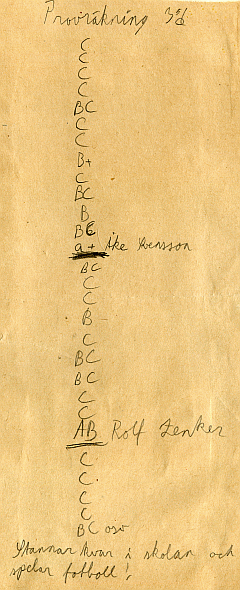 Provräkning 3d
C
C
C
C
BC
C
C
B+
C
BC
B
BC
a+ Åke Svensson
BC
C
C
B
C
BC
BC
C
C
AB Rolf Zenker
C
C
C
C
BC osv
Stannar kvar i skolan och
spelar fotboll!